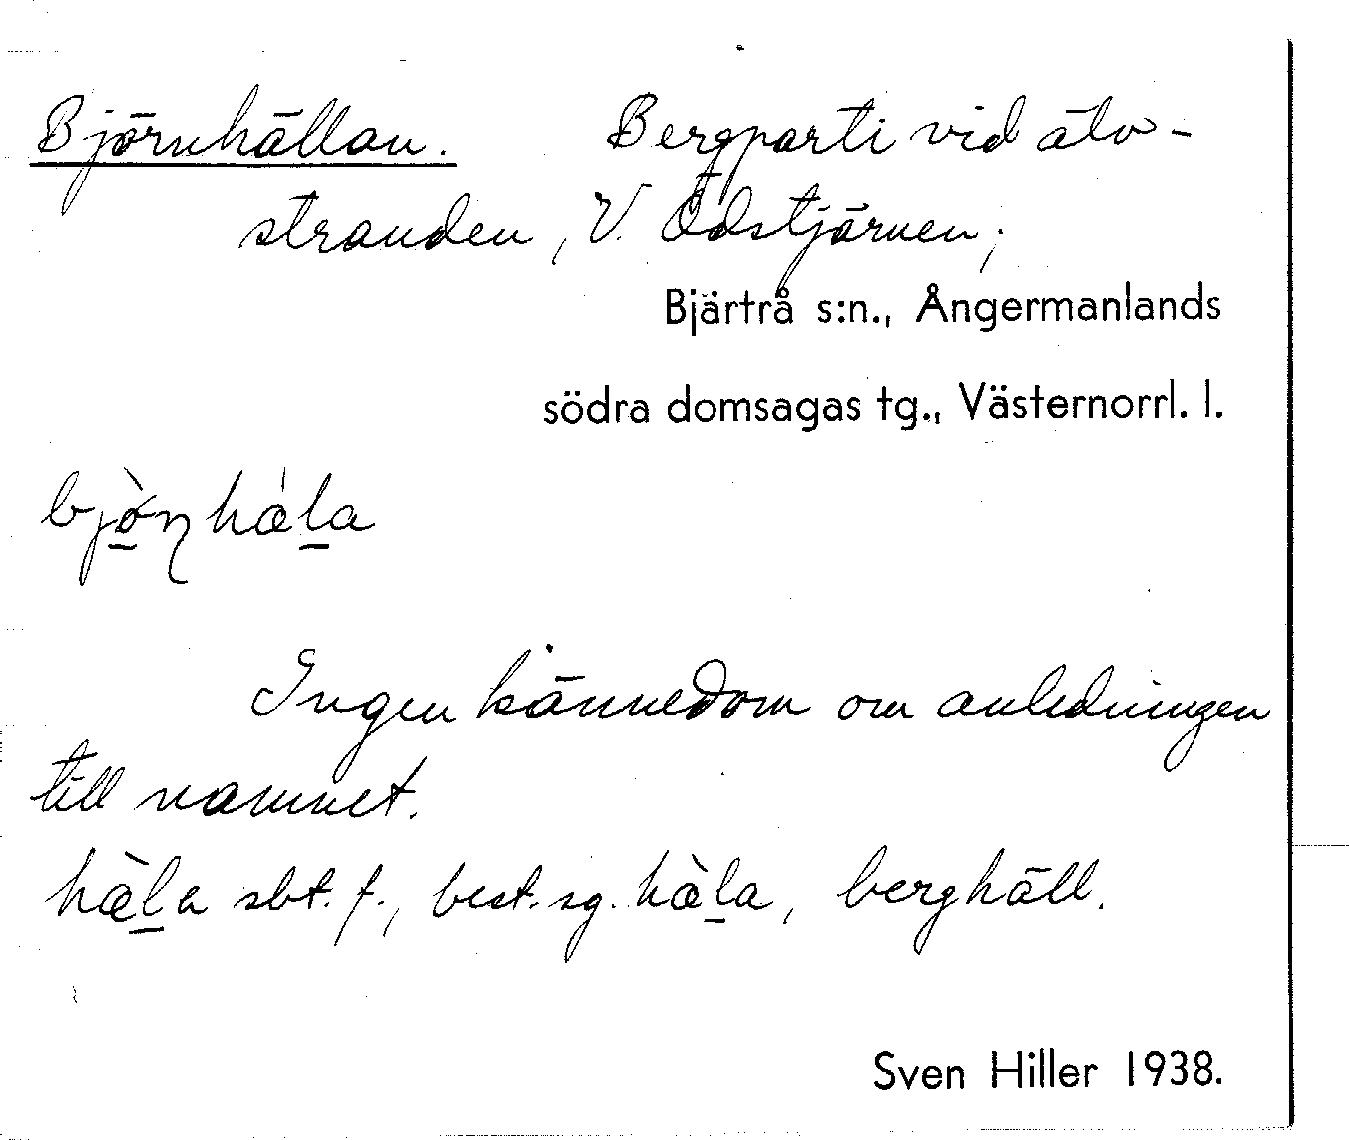 Björnhällan. Bergparti vid älv-
stranden, V. Ödstjärnen,
Bjärtrå s:n., Ångermanlands
södra domsagas tg., Västernorrl. l.
Ingen kännedom om anledningen
till namnet.
sbt. f., best. sg. berghäll.
Sven Hiller 1938.